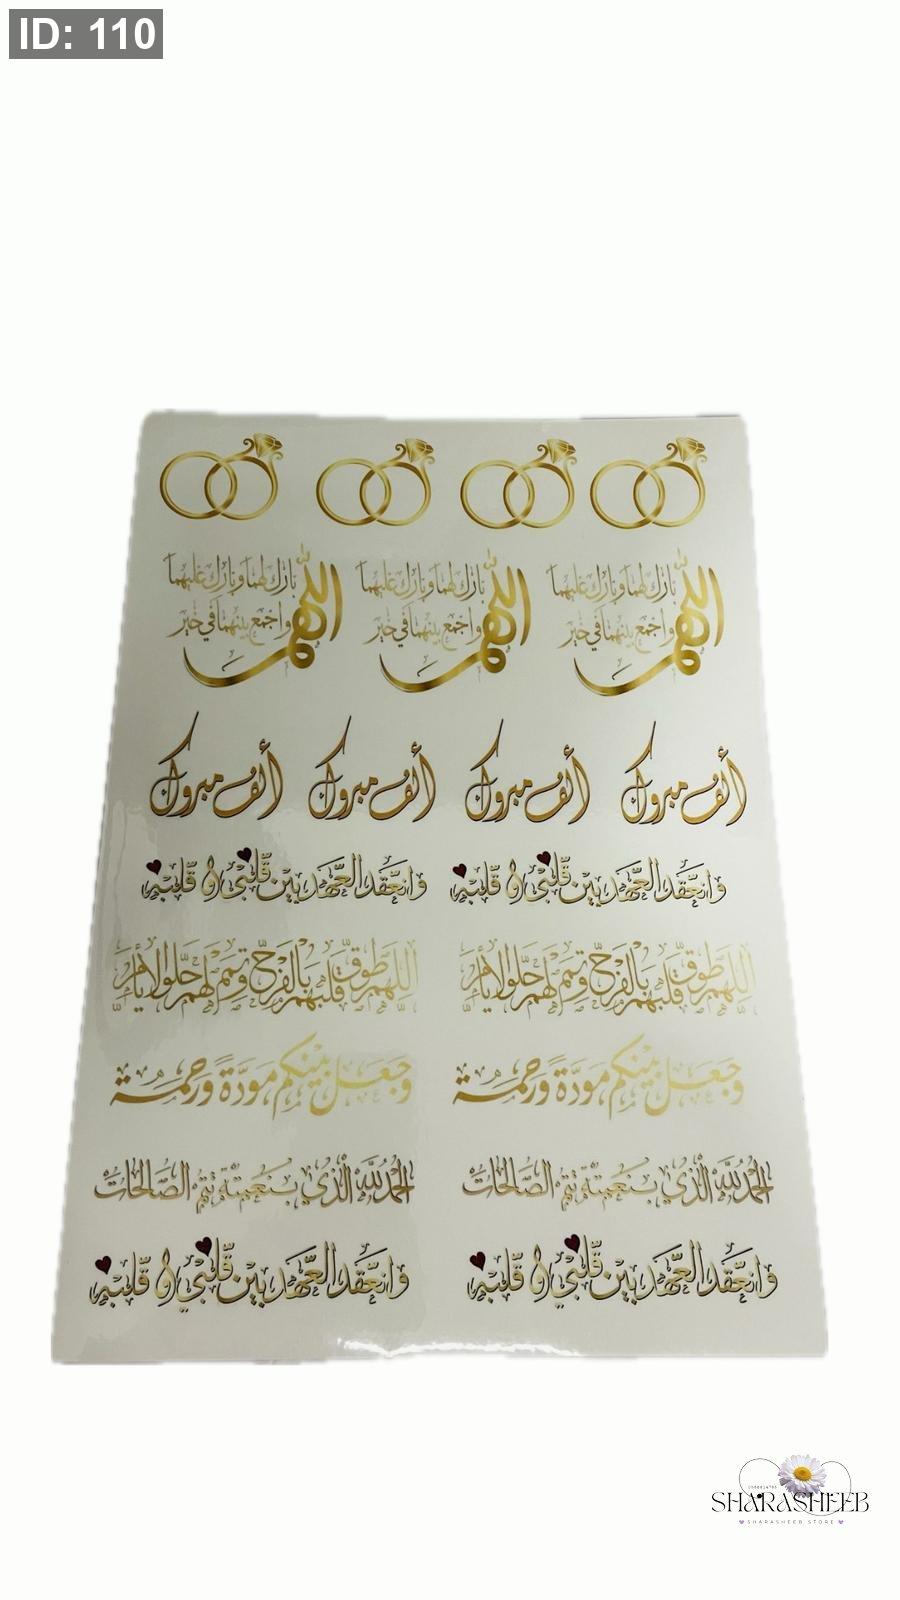 ID: 110
اللهم بارك لهما وبارك عليهما واجمع بينهما في خير اللهم بارك لهما وبارك عليهما واجمع بينهما في خير اللهم بارك لهما وبارك عليهما واجمع بينهما في خير
ألف مبروك ألف مبروك ألف مبروك ألف مبروك
وانعقد العهد بين قلبي و قلبه وانعقد العهد بين قلبي و قلبه
اللهم طوق قلبهم بالفرح وتمم لهم حلو الأيام اللهم طوق قلبهم بالفرح وتمم لهم حلو الأيام
وجعل بينكم مودةً ورحمة وجعل بينكم مودةً ورحمة
الحمدلله الذي بنعمته تتم الصالحات الحمدلله الذي بنعمته تتم الصالحات
وانعقد العهد بين قلبي و قلبه وانعقد العهد بين قلبي و قلبه
SHARASHEEB
SHARASHEEB STORE